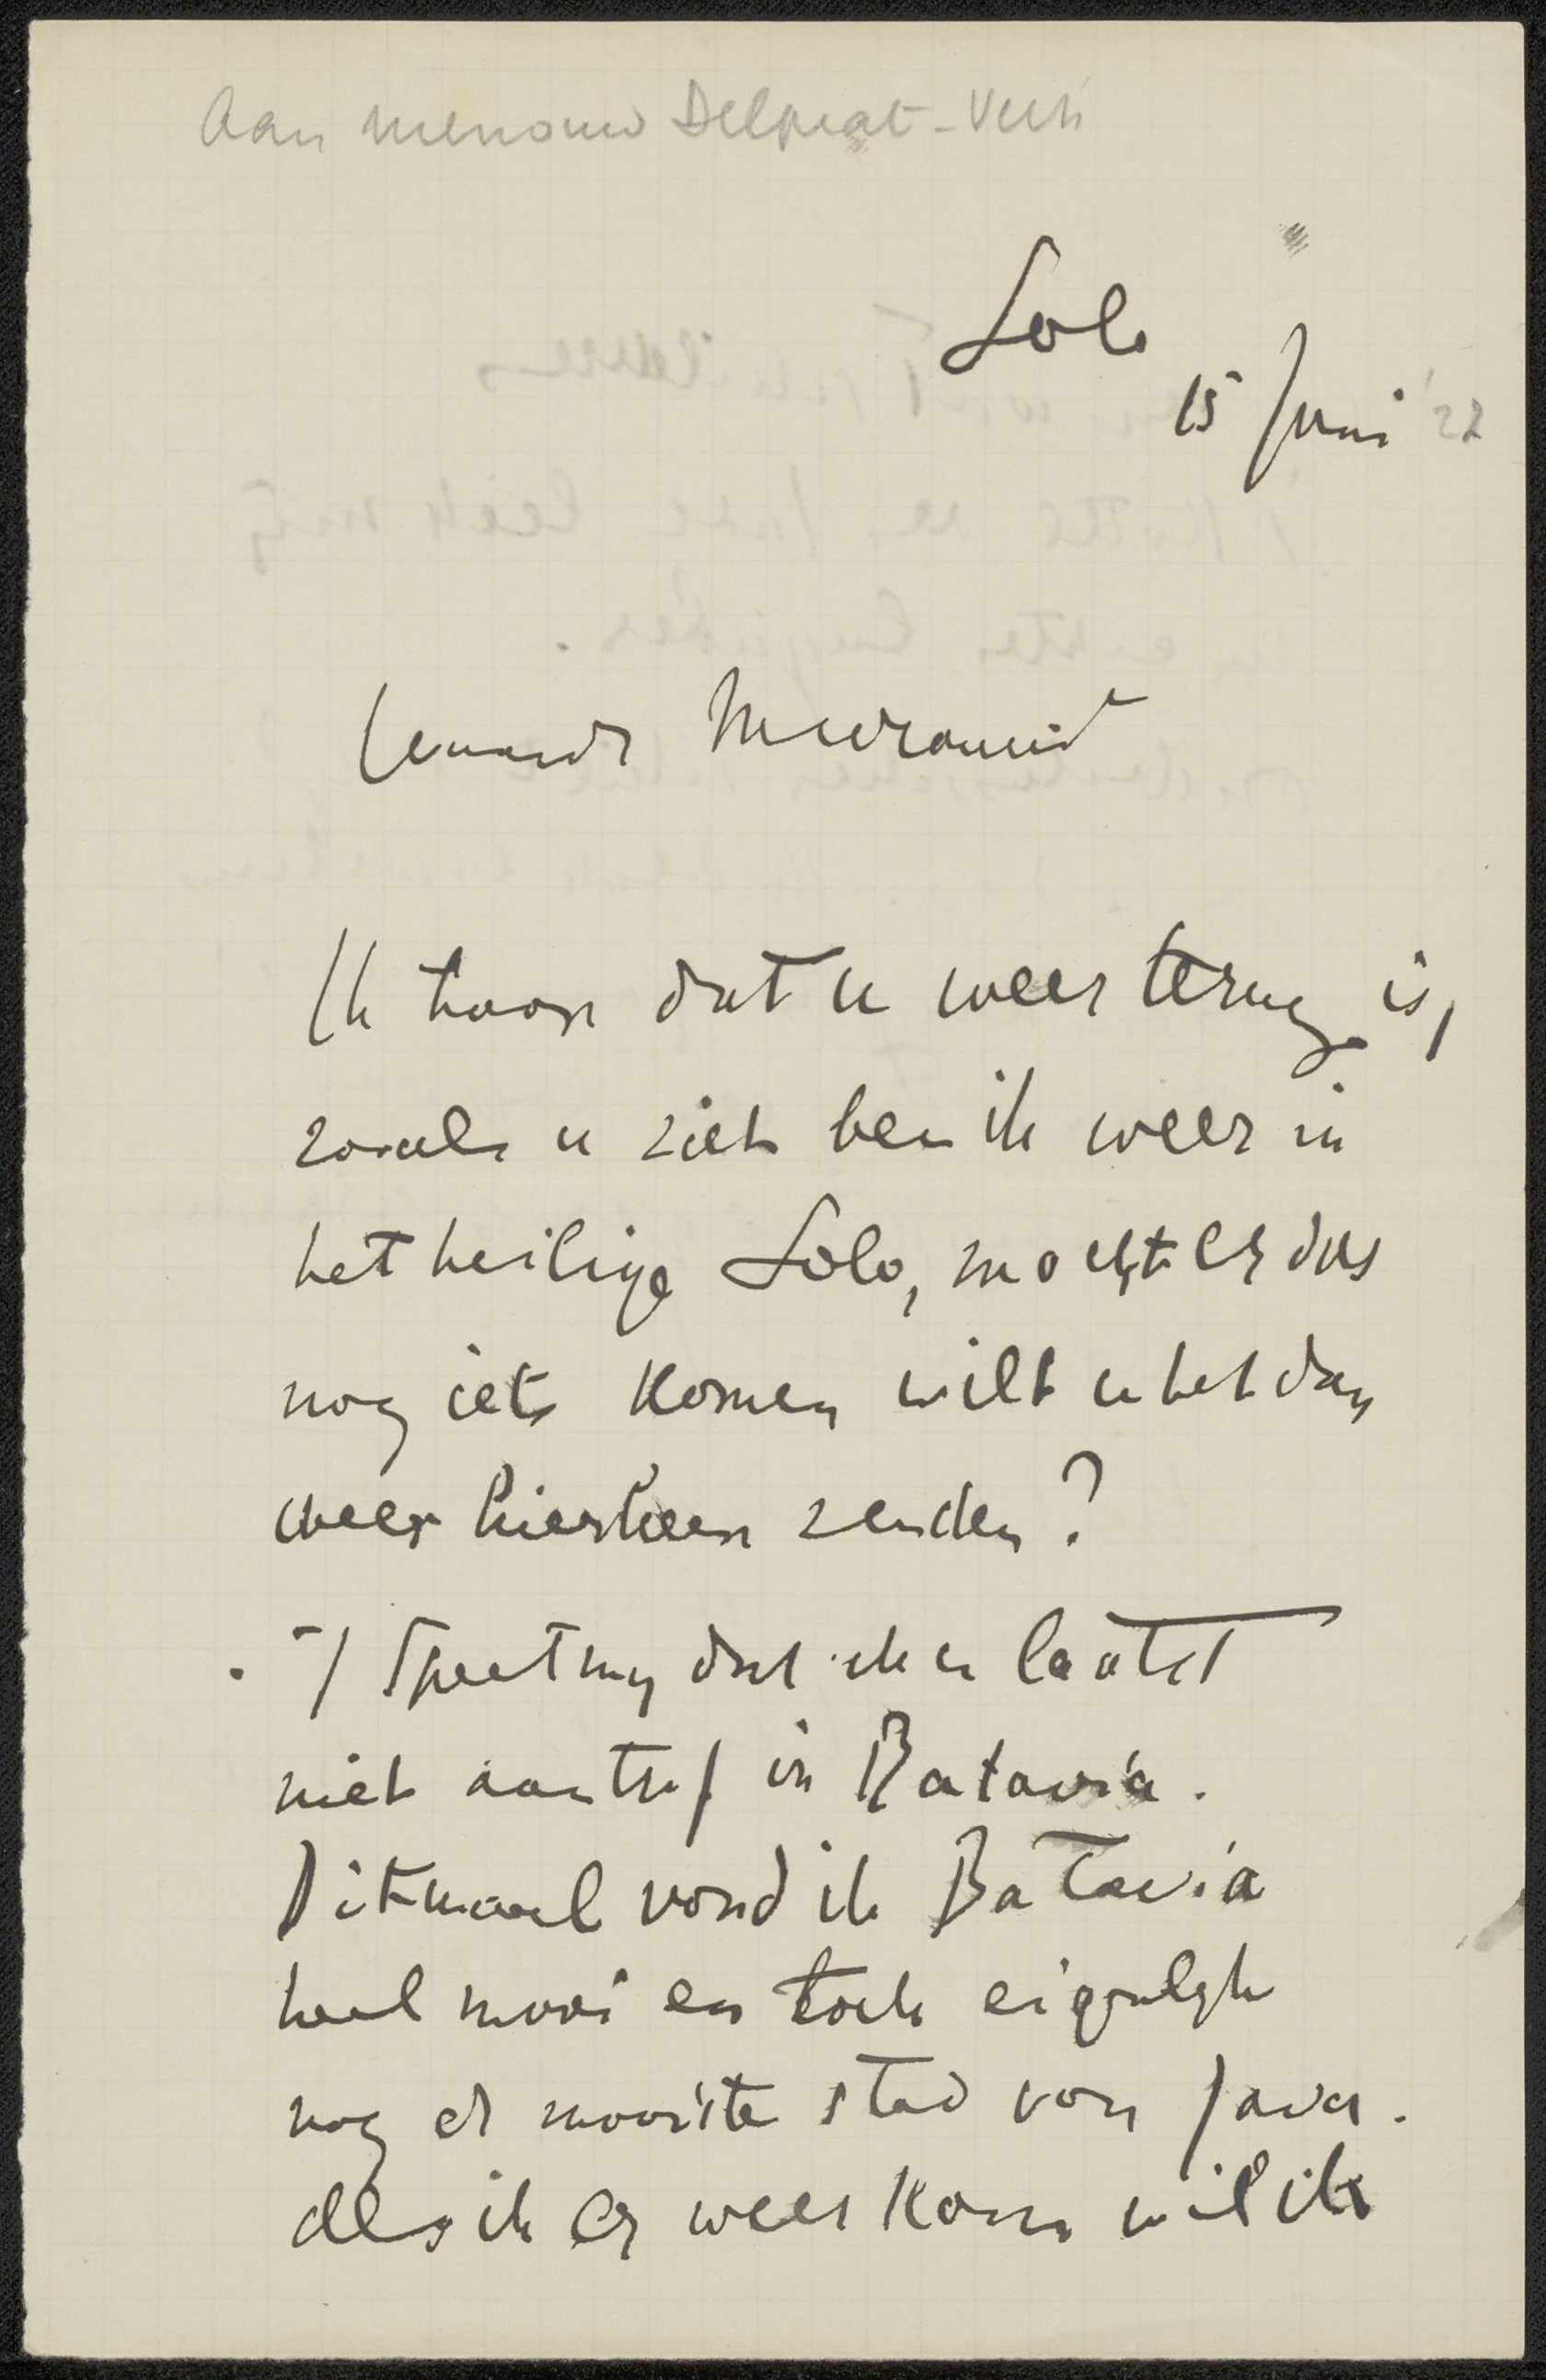 Aan mevrouw Delprat-Veth
Solo
15 Juni '22
Geachte Mevrouw
Ik hoor dat u weer terug is,
zooals u ziet ben ik weer in
het heilige Solo, mocht er dus
nog iets komen wilt u het dan
weer hierheen zenden?
't Speet mij dat ik u laatst
niet aantrof in Batavia.
Ditmaal vond ik Batavia
heel mooi en toch eigenlijk
nog de mooiste stad van Java.
Als ik er weer kom wil ik